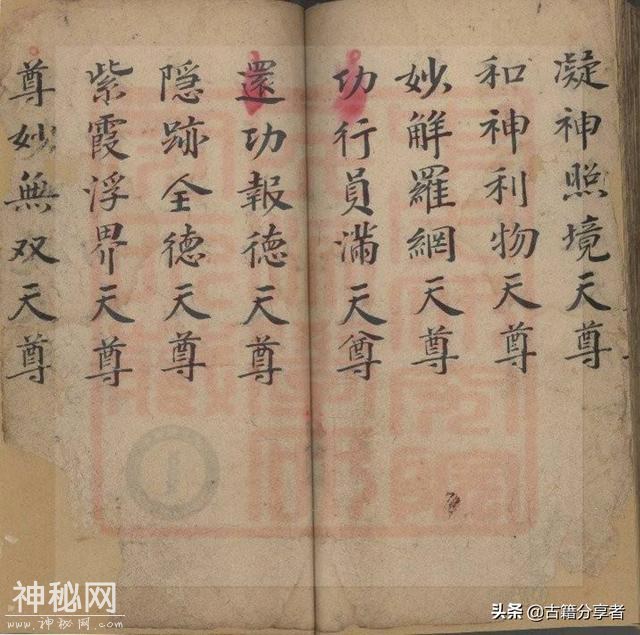 凝神照境天尊
和神利物天尊
妙解羅網天尊
功行員滿天尊
還功報德天尊
隠跡全德天尊
紫霞浮界天尊
尊妙無双天尊
神秘网
WWW.神秘网.COM
头条 @古籍分享者